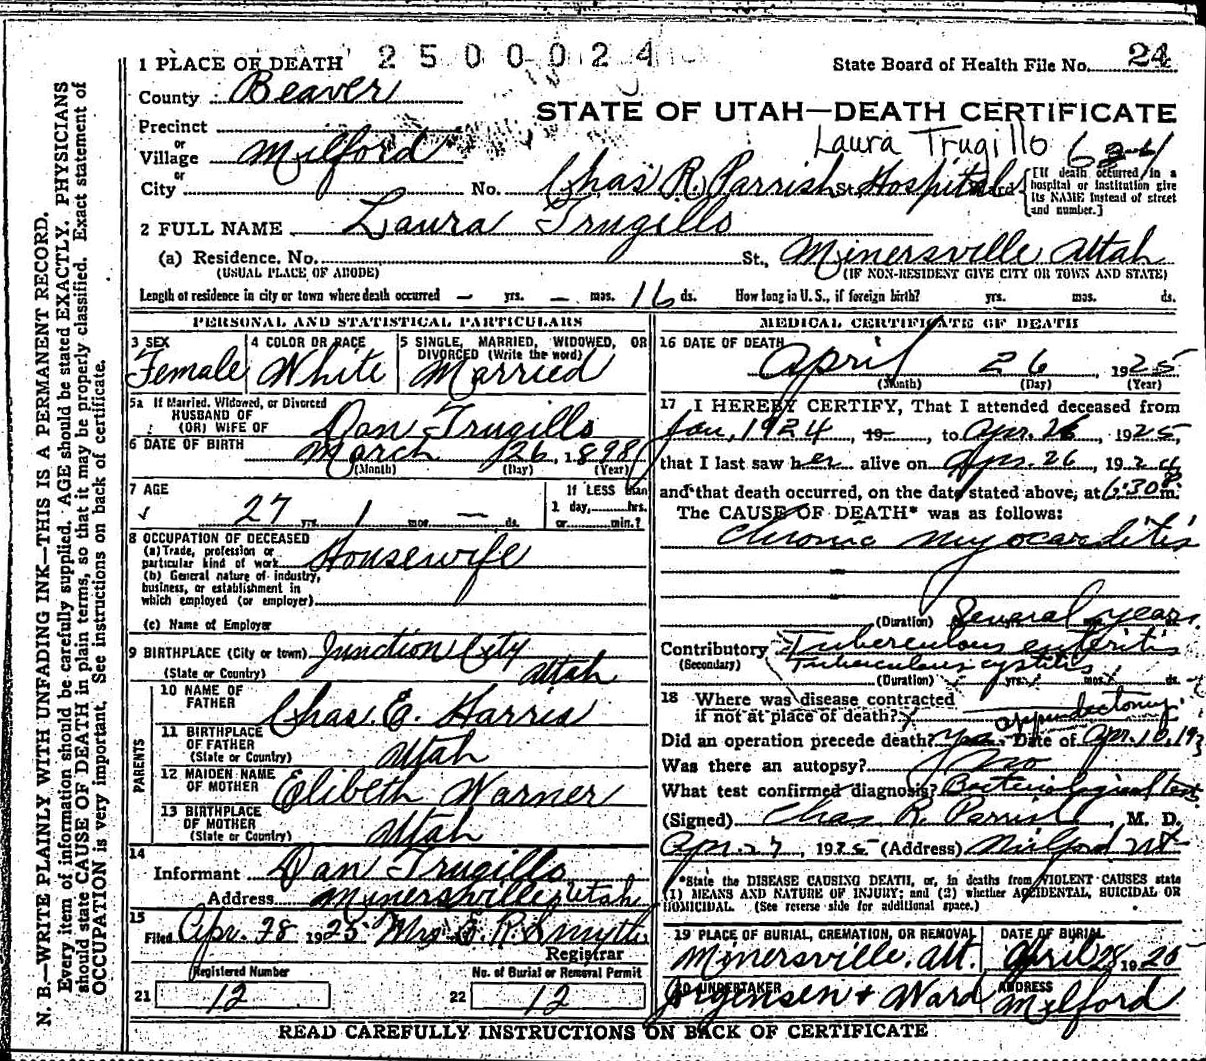 N. B.—WRITE PLAINLY WITH UNFADING INK—THIS IS A PERMANENT RECORD.
Every item of information should be carefully supplied. AGE should be stated EXACTLY. PHYSICIANS
should state CAUSE OF DEATH in plain terms, so that it may be properly classified. Exact statement of
OCCUPATION is very important. See instructions on back of certificate.
1 PLACE OF DEATH 2500024 State Board of Health File No. 24
County Beaver
STATE OF UTAH—DEATH CERTIFICATE
Precinct
or
Village Milford Laura Trugillo
or
City No. Chas R. Parrish St. Hospital Ward
[If death occurred in a
hospital or institution give
its NAME instead of street
and number.]
2 FULL NAME Laura Trugillo
(a) Residence. No. St., Minersville Utah
(USUAL PLACE OF ABODE) (IF NON-RESIDENT GIVE CITY OR TOWN AND STATE)
Length of residence in city or town where death occurred — yrs. — mos. 16 ds. How long in U. S., if foreign birth? yrs. mos. ds.
PERSONAL AND STATISTICAL PARTICULARS
3 SEX 4 COLOR OR RACE 5 SINGLE, MARRIED, WIDOWED, OR
DIVORCED (Write the word)
Female White Married
5a If Married, Widowed, or Divorced
HUSBAND OF
(OR) WIFE OF Dan Trugillo
6 DATE OF BIRTH March 26, 1898
(Month) (Day) (Year)
7 AGE If LESS than
27 yrs. 1 mos. — ds. 1 day, hrs.
or min.?
8 OCCUPATION OF DECEASED
(a) Trade, profession or
particular kind of work Housewife
(b) General nature of industry,
business, or establishment in
which employed (or employer)
(c) Name of Employer
9 BIRTHPLACE (City or town) Junction City
(State or Country) Utah
PARENTS
10 NAME OF
FATHER Chas. E. Harris
11 BIRTHPLACE
OF FATHER
(State or Country) Utah
12 MAIDEN NAME
OF MOTHER Elibeth Warner
13 BIRTHPLACE
OF MOTHER
(State or Country) Utah
14
Informant Dan Trugillo
Address Minersville, Utah
15
Filed Apr. 28 1925 Mrs E. R. Smyth
Registrar
Registered Number No. of Burial or Removal Permit
21 12 22 12
MEDICAL CERTIFICATE OF DEATH
16 DATE OF DEATH
April 26 1925
(Month) (Day) (Year)
17 I HEREBY CERTIFY, That I attended deceased from
Jan, 1924, 19 , to Apr. 26, 1925,
that I last saw her alive on Apr. 26, 192
and that death occurred, on the date stated above, at 6:30 P m.
The CAUSE OF DEATH* was as follows:
Chronic myocarditis
(Duration) Several years
Contributory Tuberculous enteritis
(Secondary) Tuberculous cystitis
(Duration) yrs. mos. ds.
18 Where was disease contracted
if not at place of death? appendectomy.
Did an operation precede death? yes Date of Apr. 10, 19
Was there an autopsy? no
What test confirmed diagnosis? Bacteriological test
(Signed) Chas R. Parrish, M. D.
Apr. 27, 1925 (Address) Milford Ut
*State the DISEASE CAUSING DEATH, or, in deaths from VIOLENT CAUSES state
(1) MEANS AND NATURE OF INJURY; and (2) whether ACCIDENTAL, SUICIDAL OR
HOMICIDAL. (See reverse side for additional space.)
19 PLACE OF BURIAL, CREMATION, OR REMOVAL DATE OF BURIAL
Minersville, Ut. April 28 1925
20 UNDERTAKER ADDRESS
Jorgensen & Ward Milford
READ CAREFULLY INSTRUCTIONS ON BACK OF CERTIFICATE